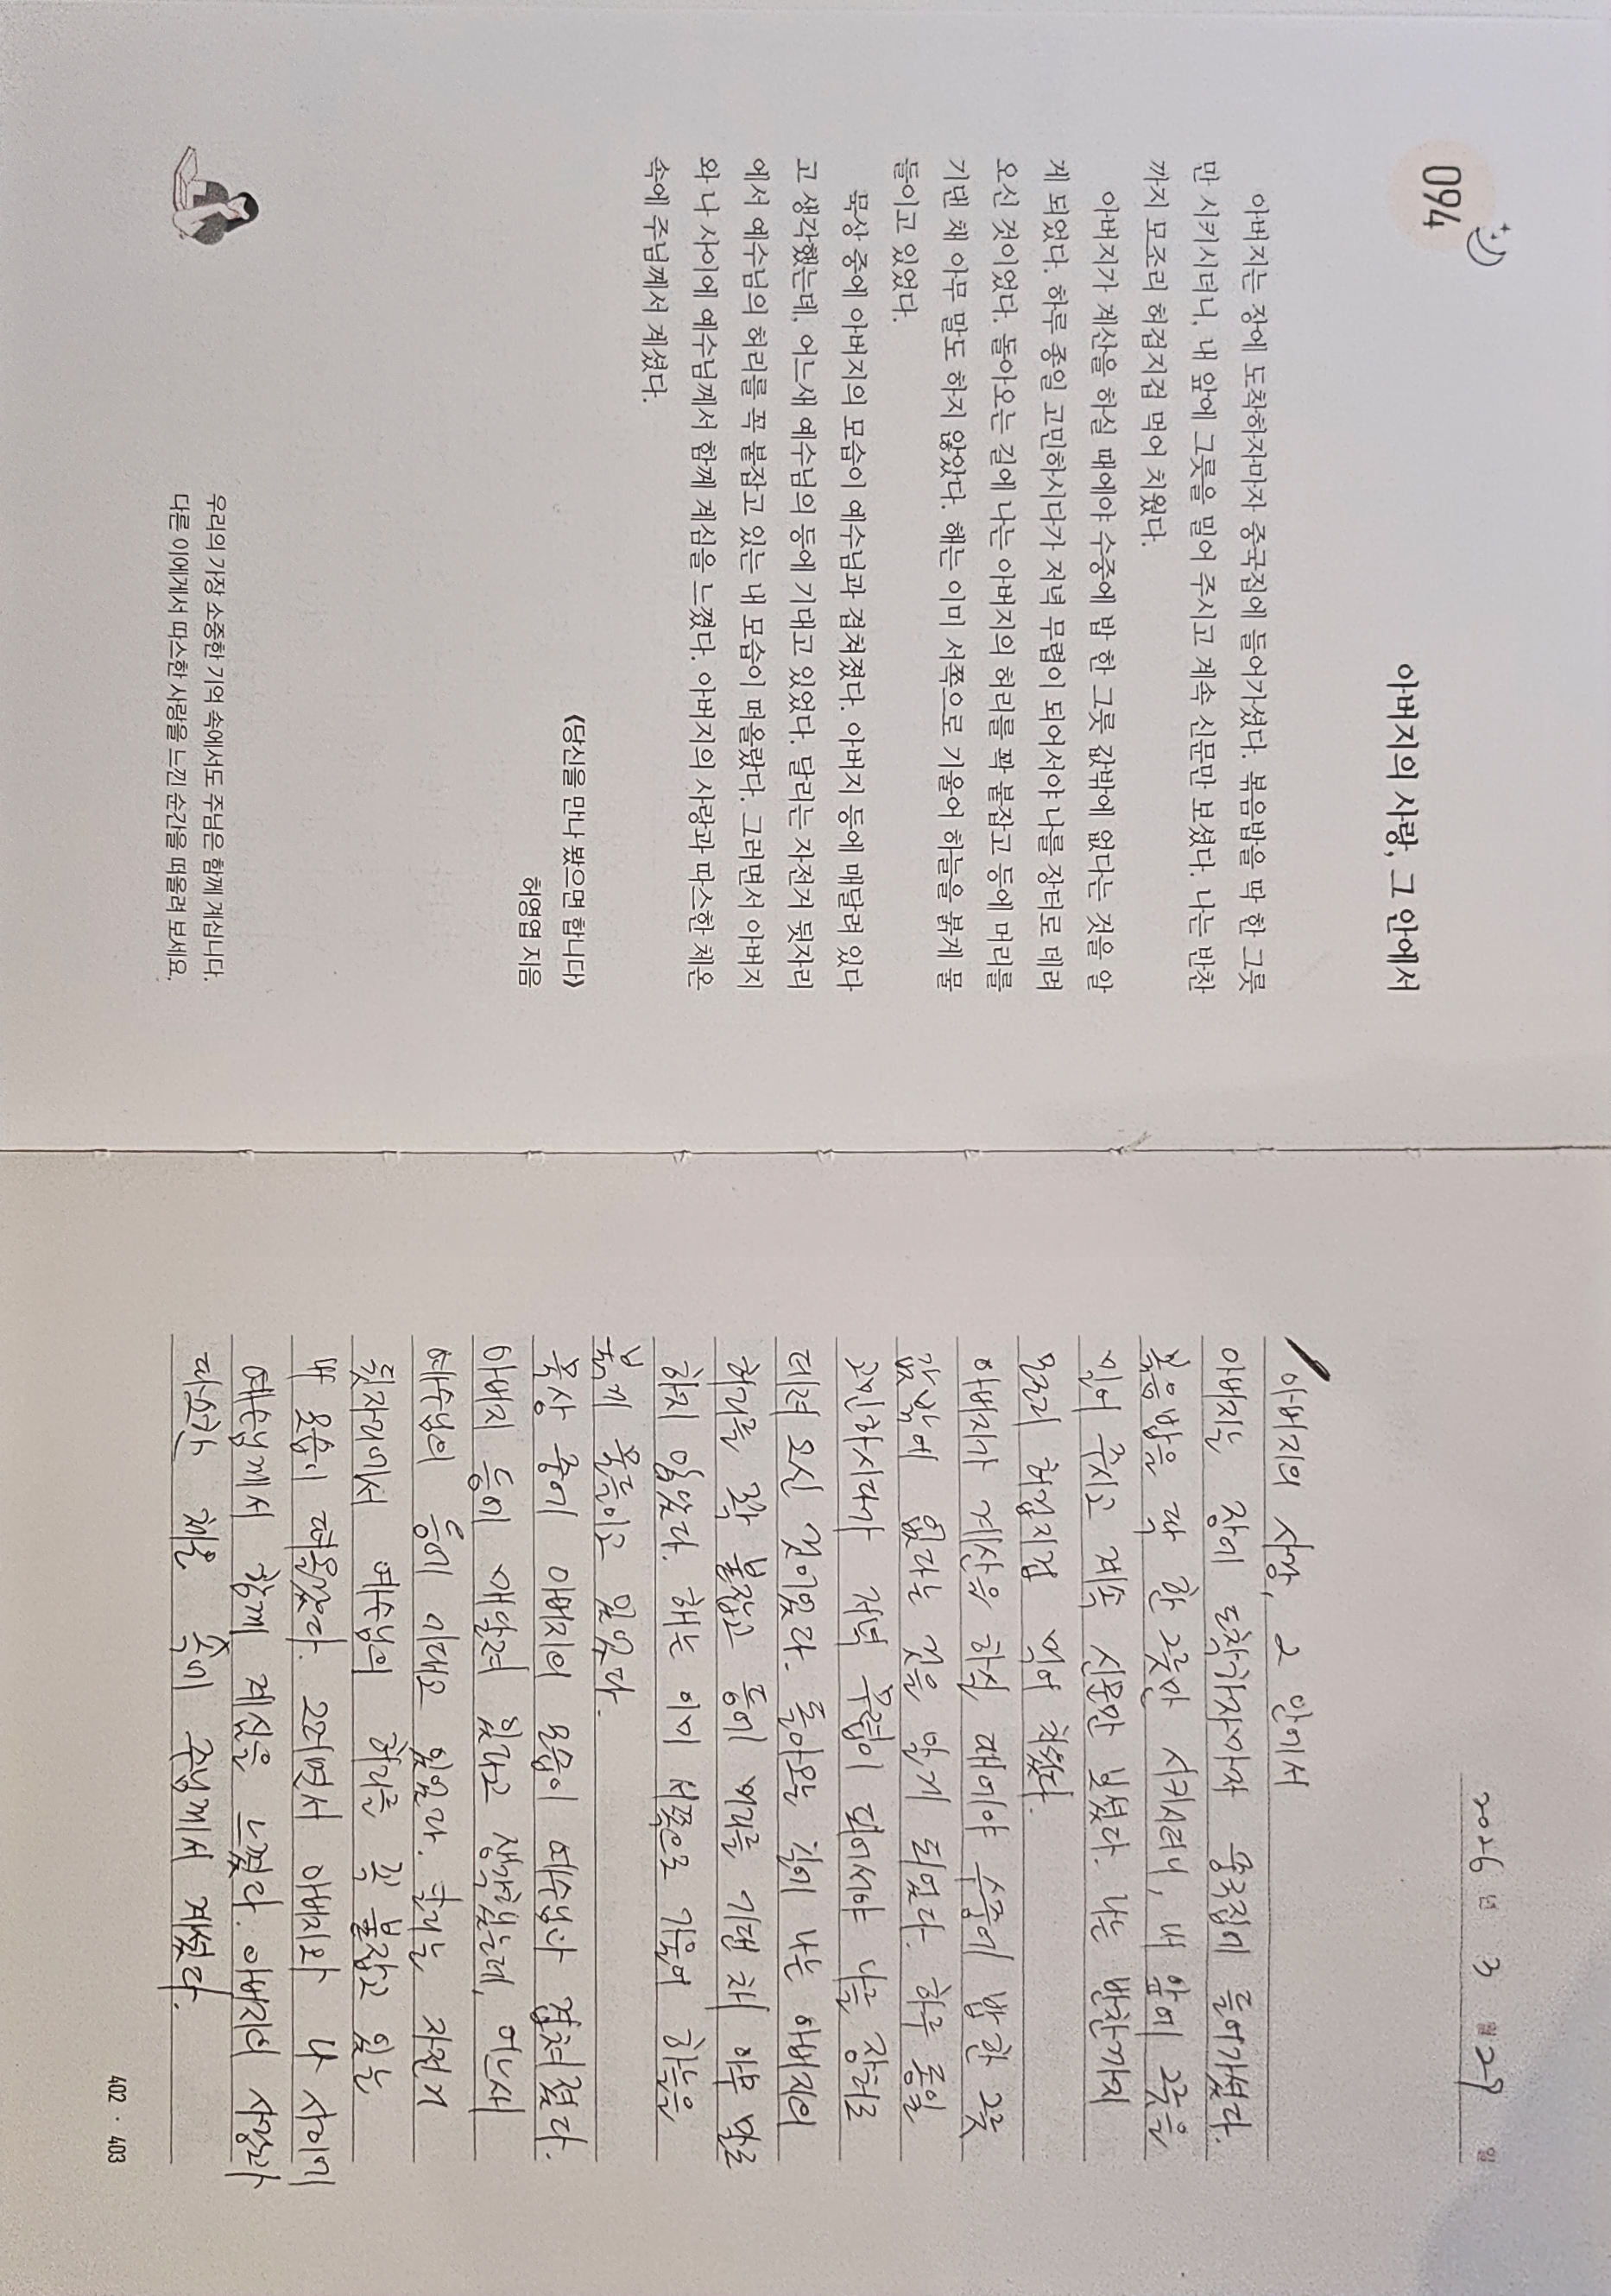 094
아버지의 사랑, 그 안에서
아버지는 장에 도착하자마자 중국집에 들어가셨다. 볶음밥을 딱 한 그릇
만 시키시더니, 내 앞에 그릇을 밀어 주시고 계속 신문만 보셨다. 나는 반찬
까지 모조리 허겁지겁 먹어 치웠다.
아버지가 계산을 하실 때에야 수중에 밥 한 그릇 값밖에 없다는 것을 알
게 되었다. 하루 종일 고민하시다가 저녁 무렵이 되어서야 나를 장터로 데려
오신 것이었다. 돌아오는 길에 나는 아버지의 허리를 꽉 붙잡고 등에 머리를
기댄 채 아무 말도 하지 않았다. 해는 이미 서쪽으로 기울어 하늘을 붉게 물
들이고 있었다.
묵상 중에 아버지의 모습이 예수님과 겹쳐졌다. 아버지 등에 매달려 있다
고 생각했는데, 어느새 예수님의 등에 기대고 있었다. 달리는 자전거 뒷자리
에서 예수님의 허리를 꼭 붙잡고 있는 내 모습이 떠올랐다. 그러면서 아버지
와 나 사이에 예수님께서 함께 계심을 느꼈다. 아버지의 사랑과 따스한 체온
속에 주님께서 계셨다.
《당신을 만나 봤으면 합니다》
허영엽 지음
우리의 가장 소중한 기억 속에서도 주님은 함께 계십니다.
다른 이에게서 따스한 사랑을 느낀 순간을 떠올려 보세요.
2026 년 3 월 29 일
아버지의 사랑, 그 안에서
아버지는 장에 도착하자마자 중국집에 들어가셨다.
볶음밥을 딱 한 그릇만 시키시더니, 내 앞에 그릇을
밀어 주시고 계속 신문만 보셨다. 나는 반찬까지
모조리 허겁지겁 먹어 치웠다.
아버지가 계산을 하실 때에야 수중에 밥 한 그릇
값밖에 없다는 것을 알게 되었다. 하루 종일
고민하시다가 저녁 무렵이 되어서야 나를 장터로
데려 오신 것이었다. 돌아오는 길에 나는 아버지의
허리를 꽉 붙잡고 등에 머리를 기댄 채 아무 말도
하지 않았다. 해는 이미 서쪽으로 기울어 하늘을
붉게 물들이고 있었다.
묵상 중에 아버지의 모습이 예수님과 겹쳐졌다.
아버지 등에 매달려 있다고 생각했는데, 어느새
예수님의 등에 기대고 있었다. 달리는 자전거
뒷자리에서 예수님의 허리를 꼭 붙잡고 있는
내 모습이 떠올랐다. 그러면서 아버지와 나 사이에
예수님께서 함께 계심을 느꼈다. 아버지의 사랑과
따스한 체온 속에 주님께서 계셨다.
402 · 403